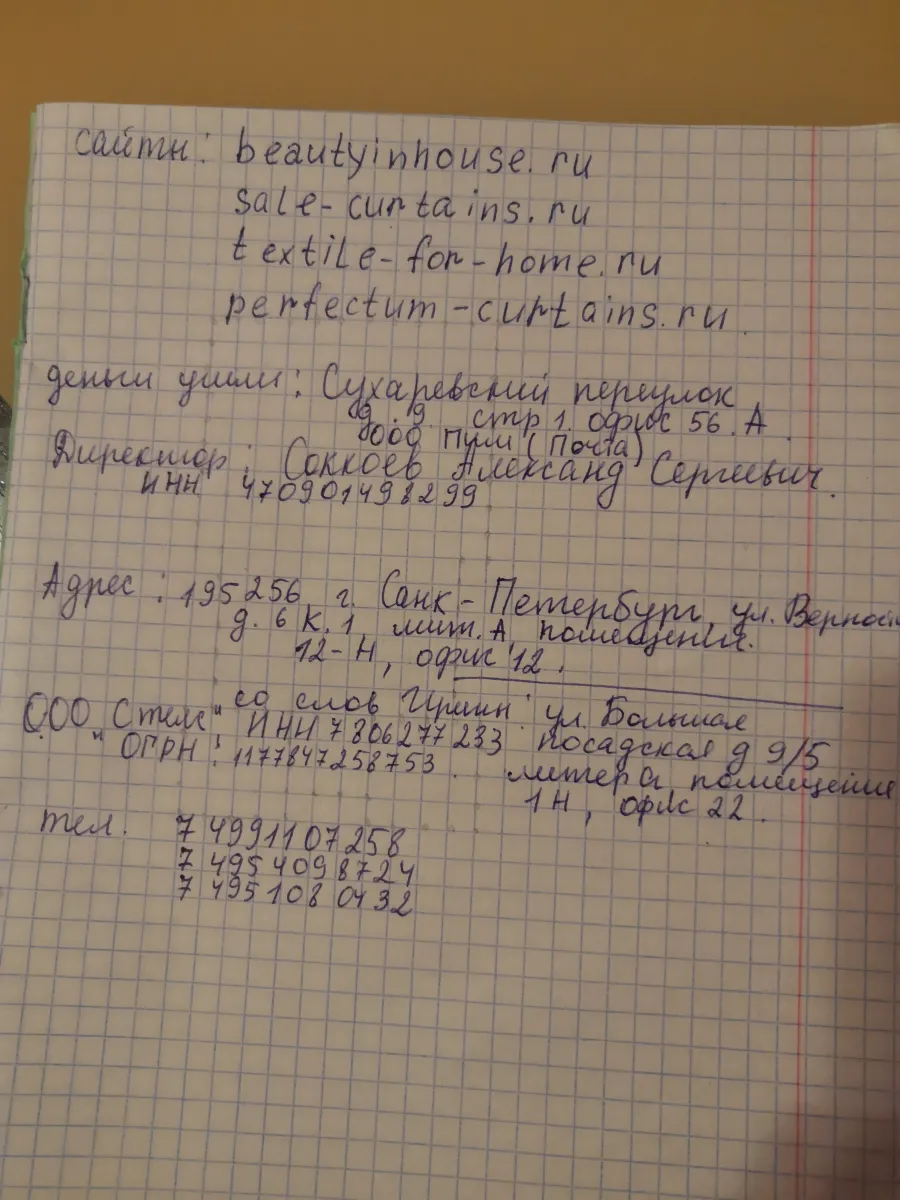 сайты: beautyinhouse.ru
sale-curtains.ru
textile-for-home.ru
perfectum-curtains.ru.
деньги ушли: Сухаревский переулок
д. 9. стр 1. офис 56. А.
ООО Пулм (Почта)
Директор: Соккоев Александ Сергеевич.
ИНН 470901498299
Адрес: 195256 г. Санк-Петербург, ул. Верности
д. 6 к. 1, лит. А, помещения.
12-Н, офис 12.
со слов Ирины: ул. Большая
ООО "Стелс", ИНН 7806277233 посадская д 9/5
ОГРН: 1177847258753. литера помещение
1Н, офис 22.
тел. 7 4991107258
7 4954098724
7 495 108 0432